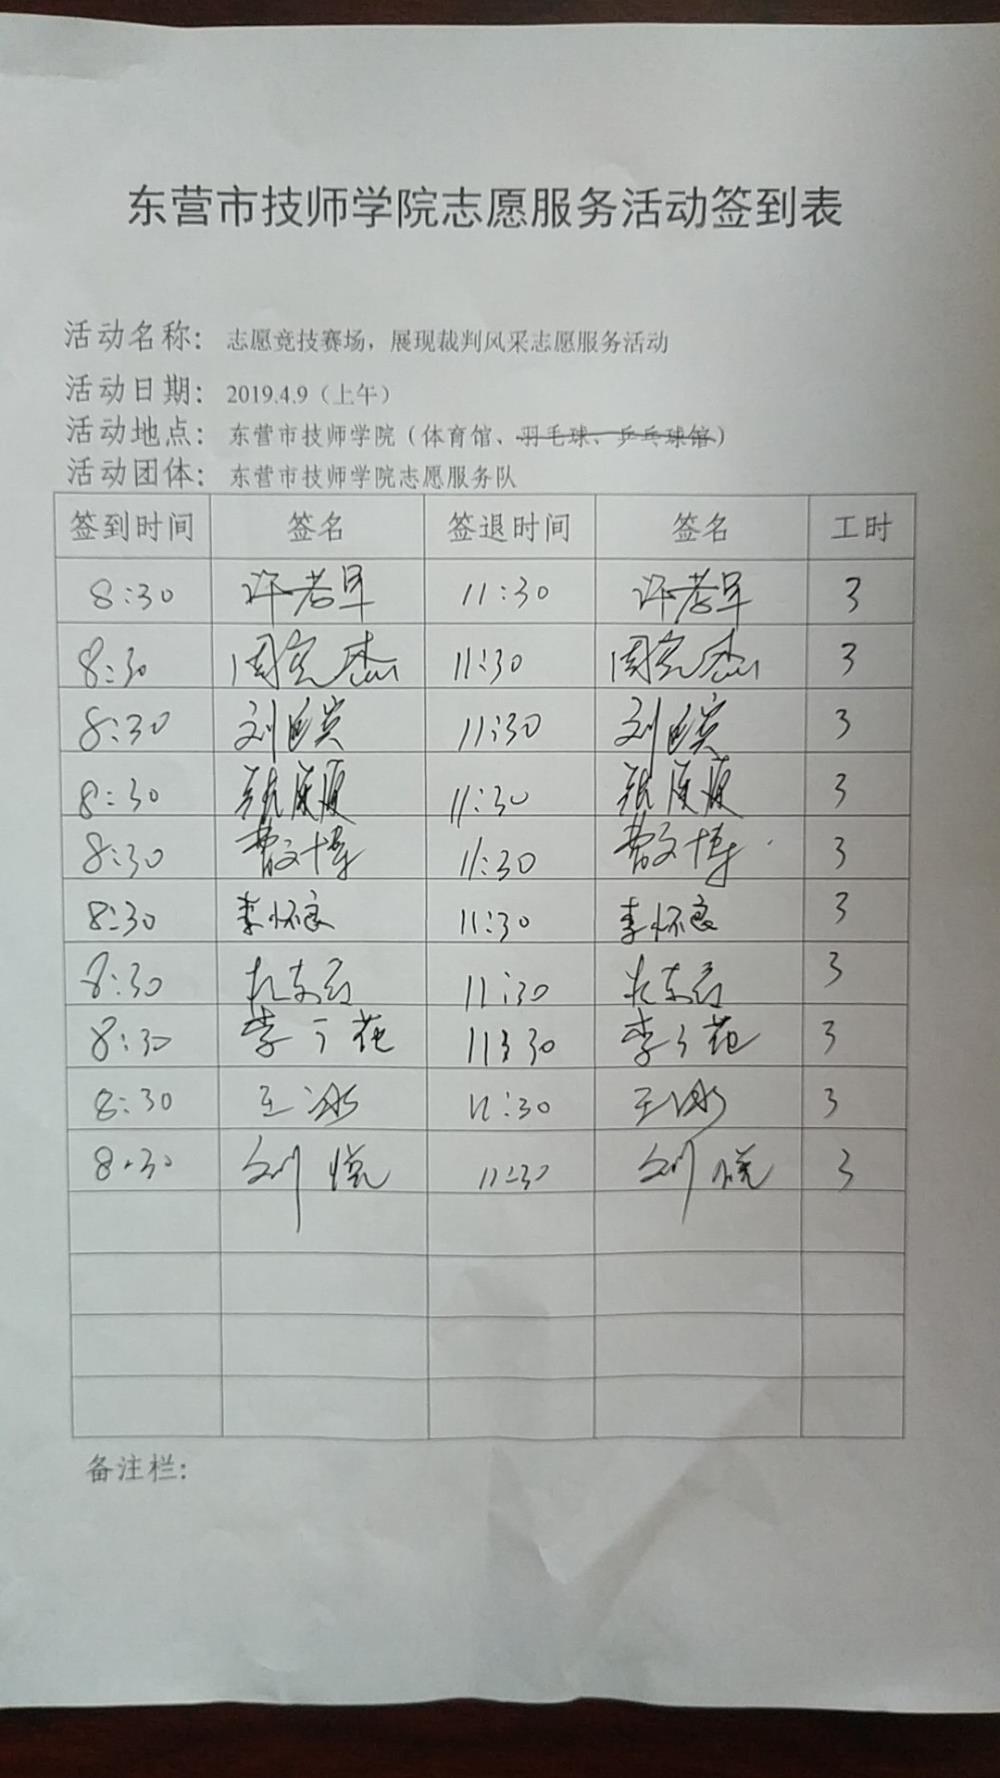 东营市技师学院志愿服务活动签到表
活动名称：志愿竞技赛场，展现裁判风采志愿服务活动
活动日期：2019.4.9（上午）
活动地点：东营市技师学院（体育馆、羽毛球、乒乓球馆）
活动团体：东营市技师学院志愿服务队
签到时间 签名 签退时间 签名 工时
8:30 许孝早 11:30 许孝早 3
8:30 周宪杰 11:30 周宪杰 3
8:30 刘 11:30 刘 3
8:30 张 11:30 张 3
8:30 曹文博 11:30 曹文博 3
8:30 李怀良 11:30 李怀良 3
8:30 11:30 3
8:30 李 花 11:30 李 花 3
8:30 王冰 11:30 王冰 3
8:30 刘悦 11:30 刘悦 3
备注栏：